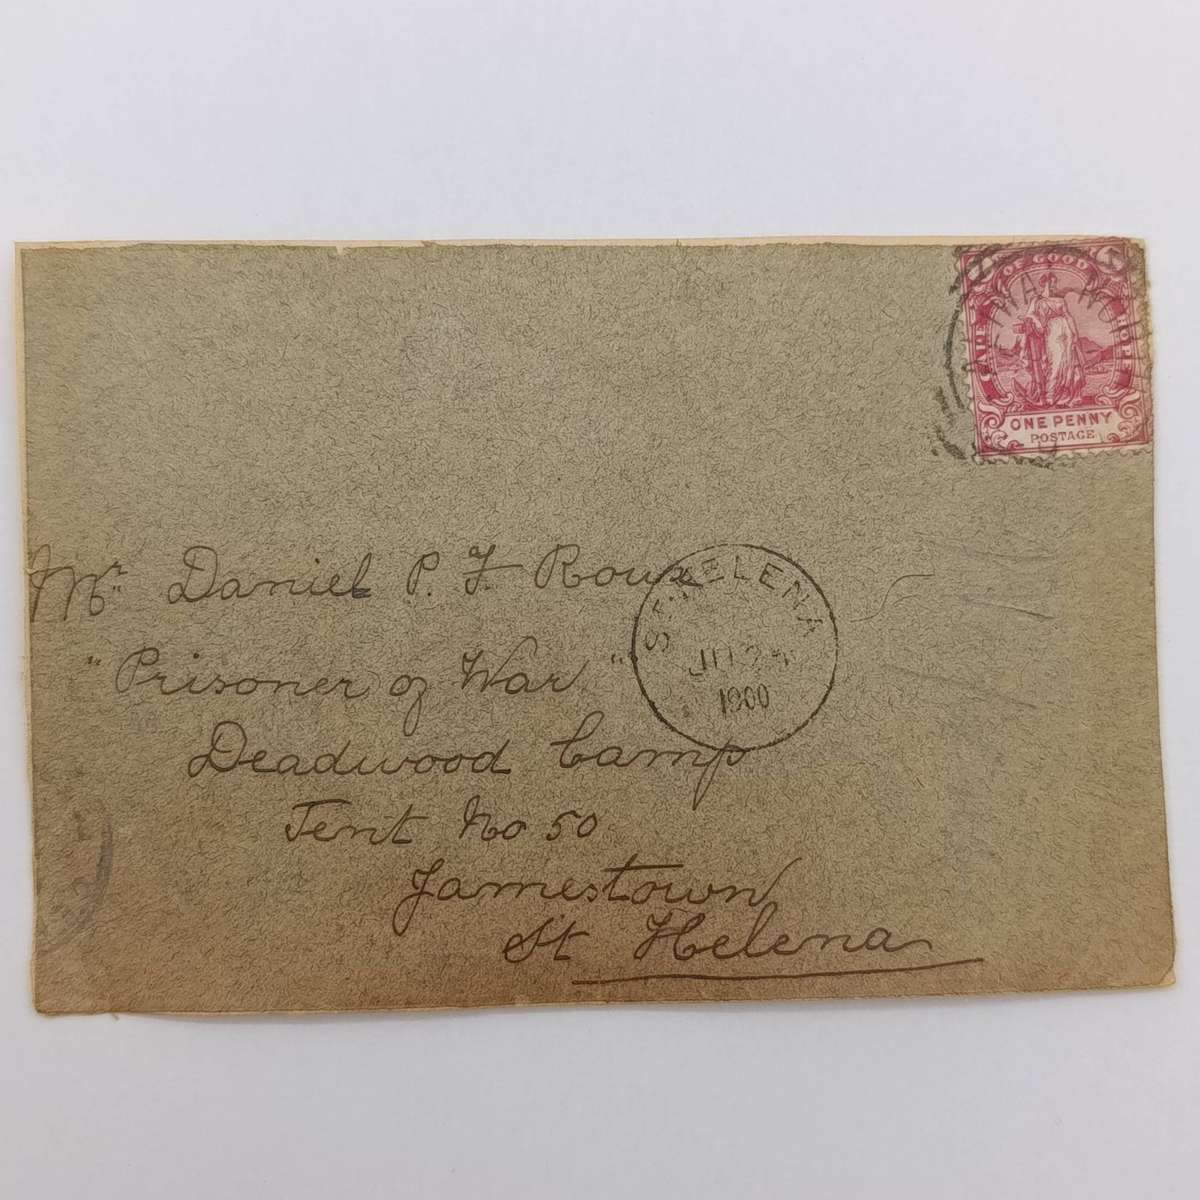 CAPE OF GOOD HOPE
ONE PENNY
POSTAGE
Mr Daniel P. F Roux
"Prisoner of War"
Deadwood Camp
Tent No 50
Jamestown
St Helena
ST. HELENA
1900